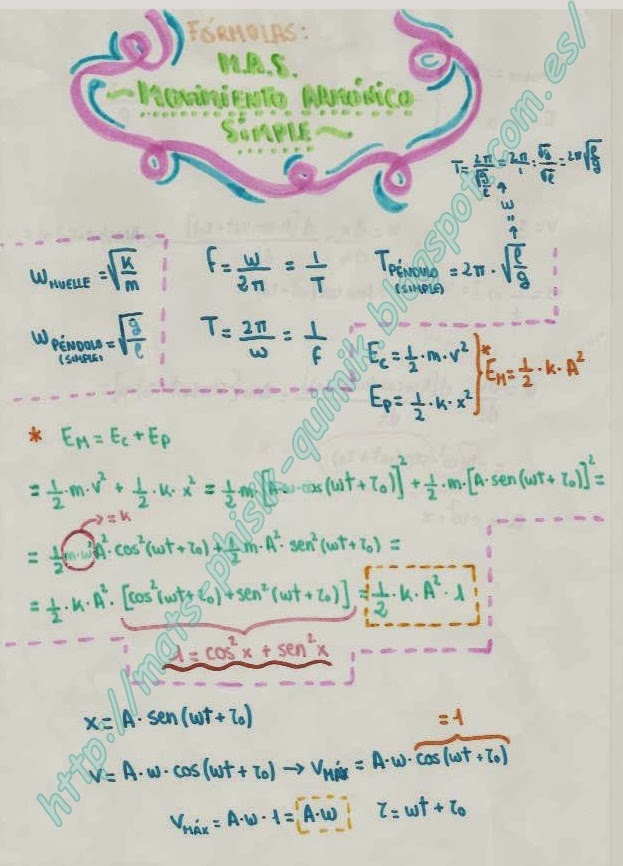 FÓRMULAS:
M.A.S.
~MOVIMIENTO ARMÓNICO
SIMPLE~
T = 2π/√(g/l) = 2π/1 · √g/√l = 2π√(l/g)
w
=
W MUELLE = √(K/m)
F = w/2π = 1/T
T PÉNDULO (SIMPLE) = 2π · √(l/g)
W PÉNDULO (SIMPLE) = √(g/l)
T = 2π/w = 1/f
Ec = 1/2 · m · v²
Ep = 1/2 · k · x²
* EM = 1/2 · k · A²
* EM = Ec + Ep
= 1/2 · m · v² + 1/2 · k · x² = 1/2 · m · [A · w · cos(wt + τ0)]² + 1/2 · m · [A · sen(wt + τ0)]² =
→ = k
= 1/2 m · w² A² · cos²(wt + τ0) + 1/2 m · A² · sen²(wt + τ0) =
= 1/2 · k · A² · [cos²(wt + τ0) + sen²(wt + τ0)] = 1/2 · k · A² · 1
1 = cos²x + sen²x
x = A · sen(wt + τ0)
= 1
v = A · w · cos(wt + τ0) → VMÁX = A · w · cos(wt + τ0)
VMÁX = A · w · 1 = A · w
τ = wt + τ0
http://mats-phisik-quimik.blogspot.com.es/